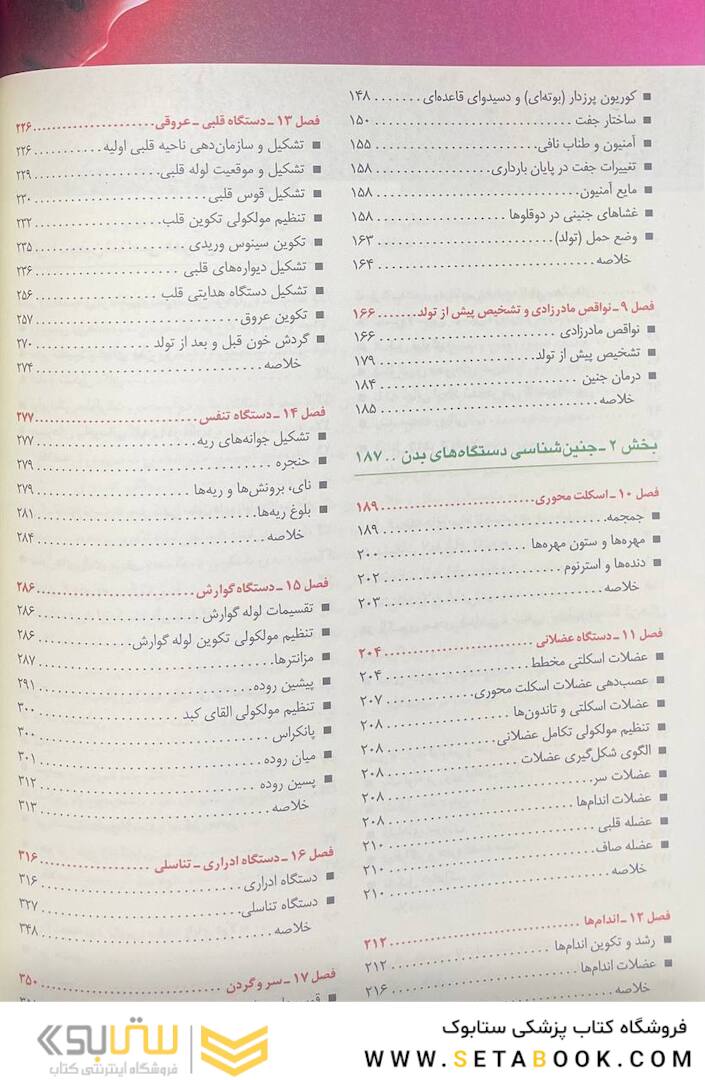 کوریون پرزدار (بوته‌ای) و دسیدوای قاعده‌ای ....... ۱۴۸
ساختار جفت ....... ۱۵۰
آمنیون و طناب نافی ....... ۱۵۵
تغییرات جفت در پایان بارداری ....... ۱۵۸
مایع آمنیون ....... ۱۵۸
غشاهای جنینی در دوقلوها ....... ۱۵۸
وضع حمل (تولد) ....... ۱۶۳
خلاصه ....... ۱۶۴
فصل ۹ - نواقص مادرزادی و تشخیص پیش از تولد ....... ۱۶۶
نواقص مادرزادی ....... ۱۶۶
تشخیص پیش از تولد ....... ۱۷۹
درمان جنین ....... ۱۸۴
خلاصه ....... ۱۸۵
بخش ۲ - جنین‌شناسی دستگاه‌های بدن .. ۱۸۷
فصل ۱۰ - اسکلت محوری ....... ۱۸۹
جمجمه ....... ۱۸۹
مهره‌ها و ستون مهره‌ها ....... ۲۰۰
دنده‌ها و استرنوم ....... ۲۰۲
خلاصه ....... ۲۰۳
فصل ۱۱ - دستگاه عضلانی ....... ۲۰۴
عضلات اسکلتی مخطط ....... ۲۰۴
عصب‌دهی عضلات اسکلت محوری ....... ۲۰۷
عضلات اسکلتی و تاندون‌ها ....... ۲۰۸
تنظیم مولکولی تکامل عضلانی ....... ۲۰۸
الگوی شکل‌گیری عضلات ....... ۲۰۸
عضلات سر ....... ۲۰۸
عضلات اندام‌ها ....... ۲۰۸
عضله قلبی ....... ۲۱۰
عضله صاف ....... ۲۱۰
خلاصه ....... ۲۱۰
فصل ۱۲ - اندام‌ها ....... ۲۱۲
رشد و تکوین اندام‌ها ....... ۲۱۲
عضلات اندام‌ها ....... ۲۱۶
خلاصه .......
فصل ۱۳ - دستگاه قلبی - عروقی ....... ۲۲۶
تشکیل و سازمان‌دهی ناحیه قلبی اولیه ....... ۲۲۶
تشکیل و موقعیت لوله قلبی ....... ۲۲۹
تشکیل قوس قلبی ....... ۲۳۰
تنظیم مولکولی تکوین قلب ....... ۲۳۲
تکوین سینوس وریدی ....... ۲۳۵
تشکیل دیواره‌های قلبی ....... ۲۳۶
تشکیل دستگاه هدایتی قلب ....... ۲۵۶
تکوین عروق ....... ۲۵۷
گردش خون قبل و بعد از تولد ....... ۲۷۰
خلاصه ....... ۲۷۴
فصل ۱۴ - دستگاه تنفس ....... ۲۷۷
تشکیل جوانه‌های ریه ....... ۲۷۷
حنجره ....... ۲۷۹
نای، برونش‌ها و ریه‌ها ....... ۲۷۹
بلوغ ریه‌ها ....... ۲۸۱
خلاصه ....... ۲۸۴
فصل ۱۵ - دستگاه گوارش ....... ۲۸۶
تقسیمات لوله گوارش ....... ۲۸۶
تنظیم مولکولی تکوین لوله گوارش ....... ۲۸۶
مزانترها ....... ۲۸۷
پیشین روده ....... ۲۹۱
تنظیم مولکولی القای کبد ....... ۳۰۰
پانکراس ....... ۳۰۰
میان روده ....... ۳۰۱
پسین روده ....... ۳۱۲
خلاصه ....... ۳۱۳
فصل ۱۶ - دستگاه ادراری - تناسلی ....... ۳۱۶
دستگاه ادراری ....... ۳۱۶
دستگاه تناسلی ....... ۳۲۷
خلاصه ....... ۳۴۸
فصل ۱۷ - سر و گردن ....... ۳۵۰
فروشگاه کتاب پزشکی ستابوک
WWW.SETABOOK.COM
ستابوک
فروشگاه اینترنتی کتاب